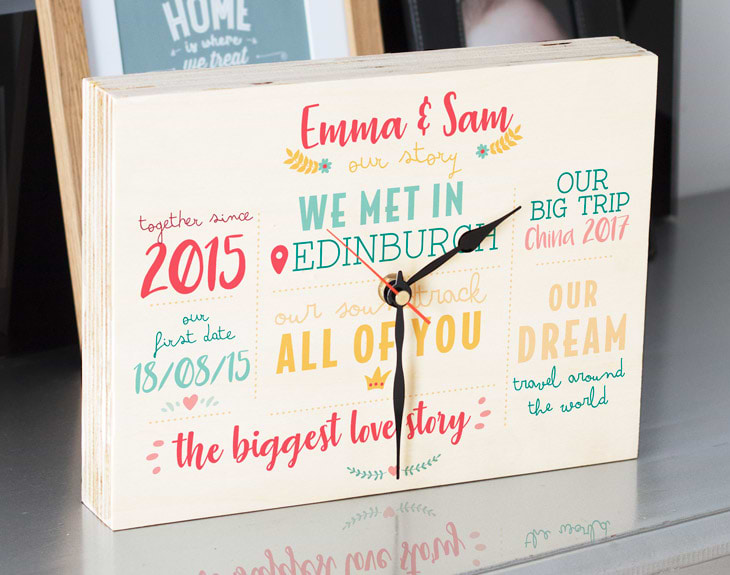 HOME
is where
we treat
Emma & Sam
our story
together since
2015
our
first date
18/08/15
WE MET IN
EDINBURGH
our soundtrack
ALL OF YOU
OUR
BIG TRIP
China 2017
OUR
DREAM
travel around
the world
the biggest love story